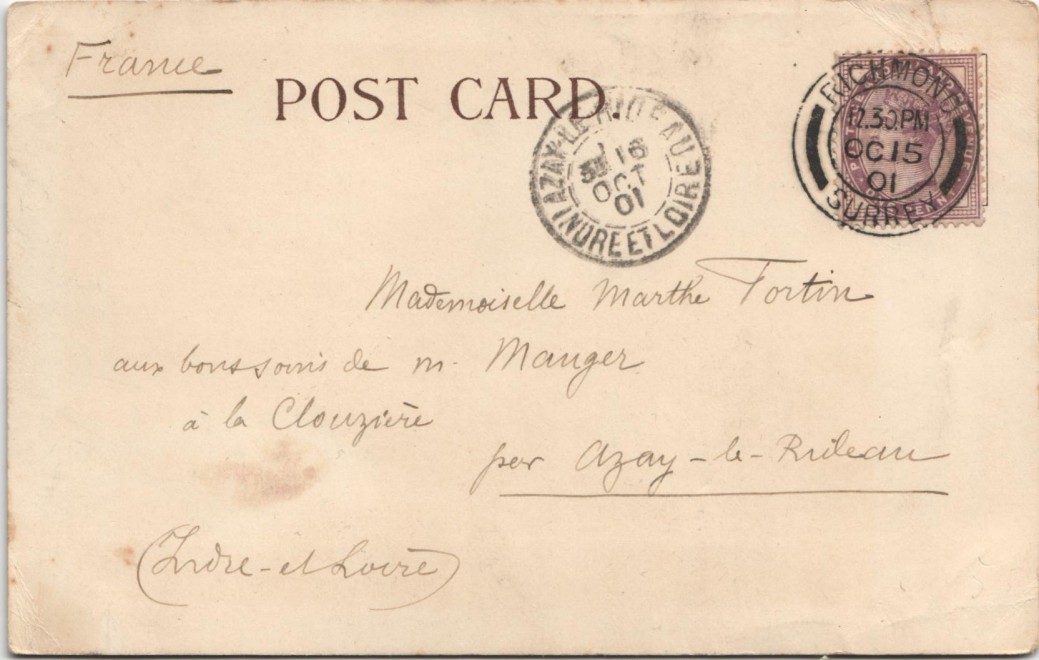 France
POST CARD.
AZAY-LE-RIDEAU
16
OCT
01
INDRE ET LOIRE
RICHMOND
12.30.PM
OC 15
01
SURREY
Mademoiselle Marthe Fortin
aux bons soins de M. Manger
à la Clouzière
par Azay-le-Rideau
(Indre-et-Loire)